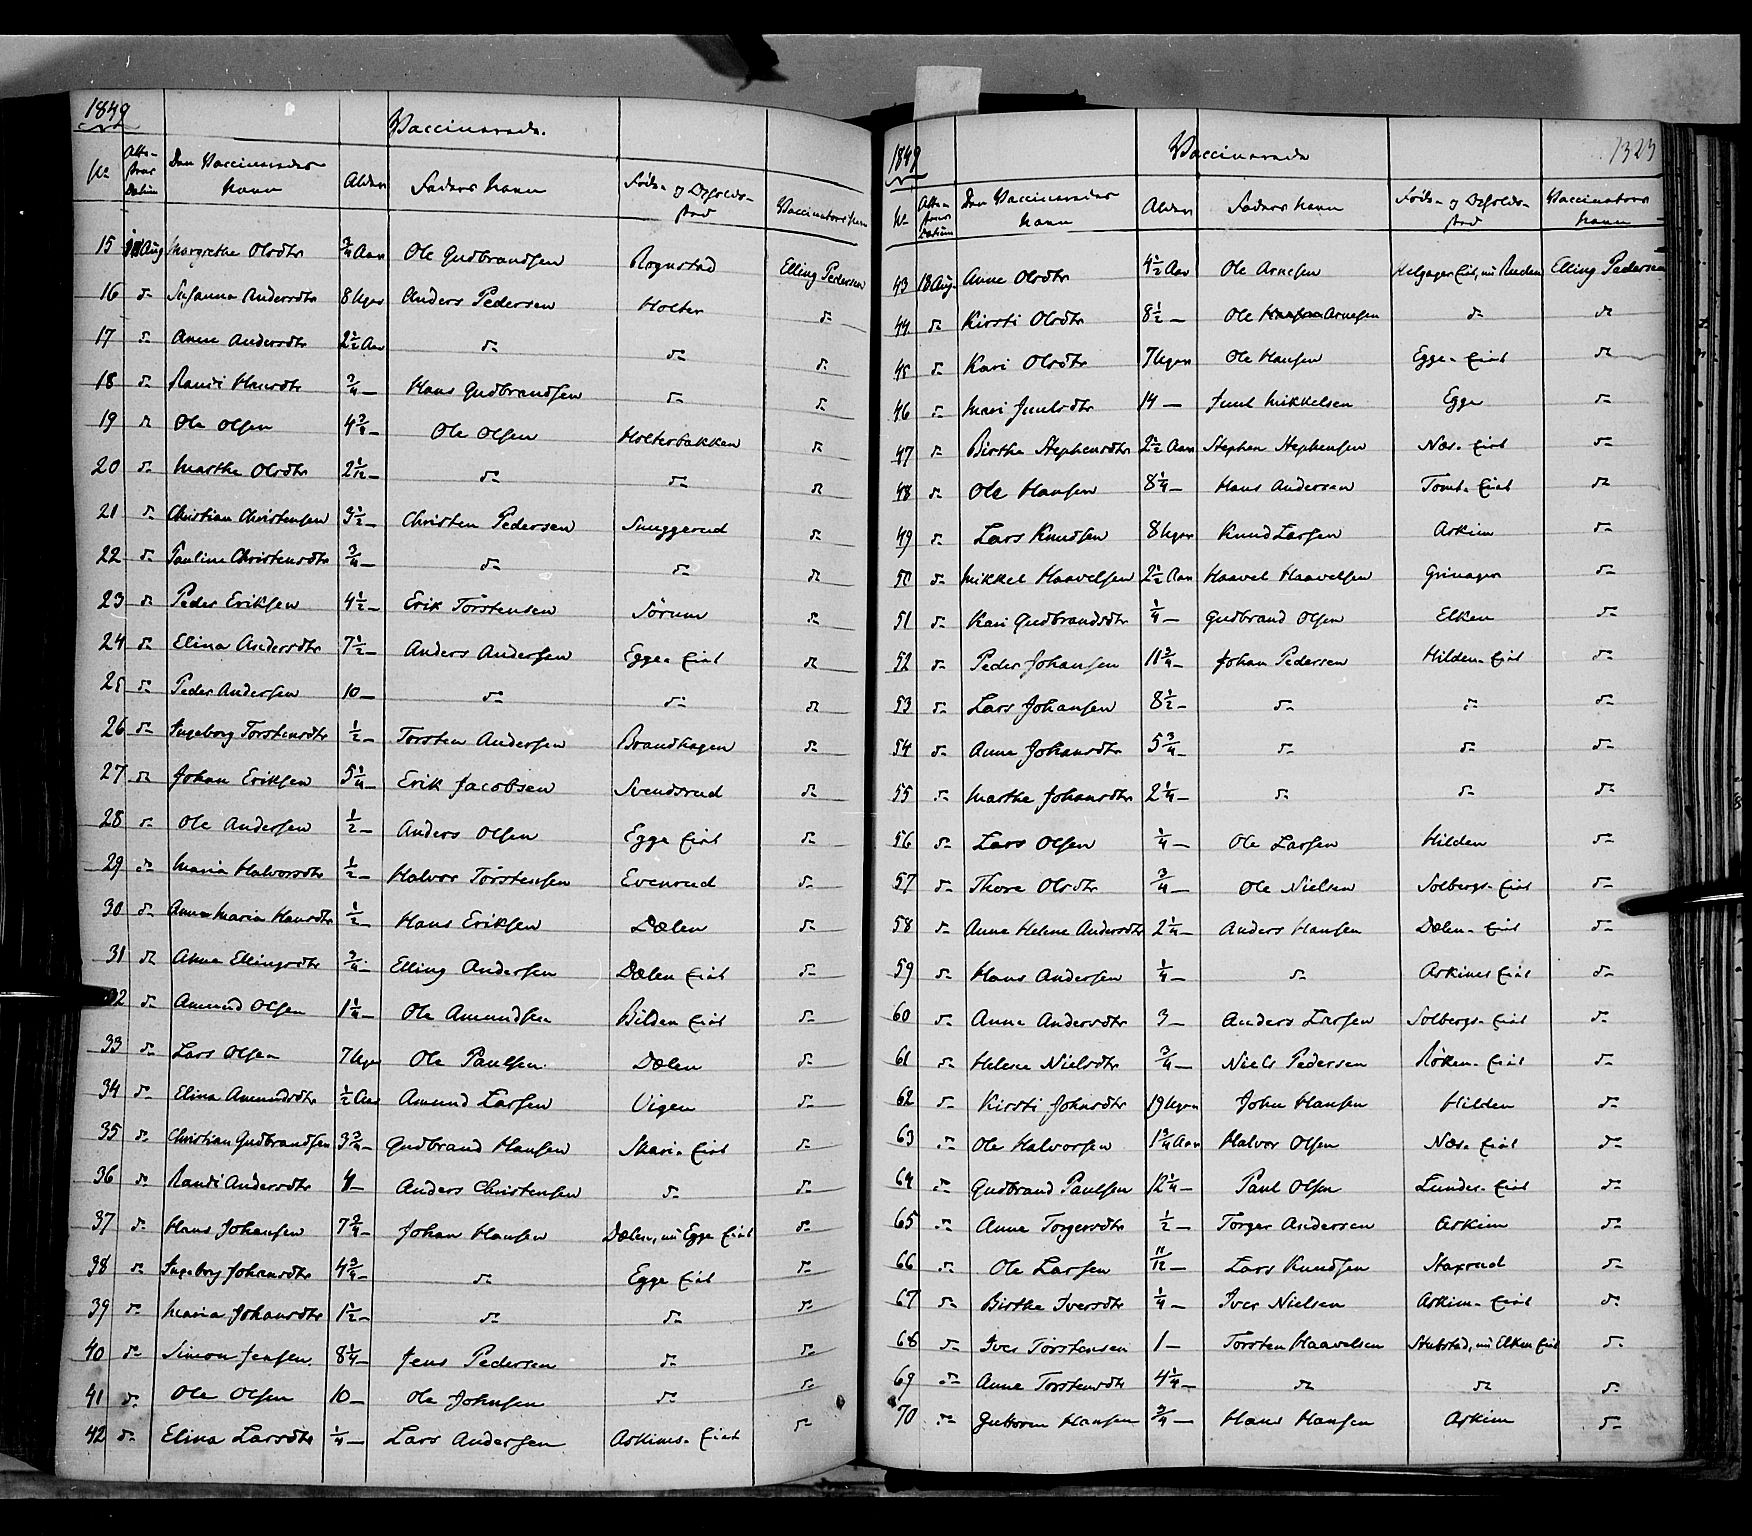 1849
Vaccinerede.
№ Atte-stens Datum Den Vaccineredes Navn Alder Faders Navn Føde- og Opholds-sted Vaccinators Navn
15 18 Aug Margrethe Olsdtr 3/4 Aar Ole Gudbrandsen Rognstad Elling Pedersen
16 do Susanna Andersdtr 8 Uger Anders Pedersen Holter do
17 do Anne Andersdtr 2 1/2 Aar do do do
18 do Randi Hansdtr 3/4 — Hans Gudbrandsen do do
19 do Ole Olsen 4 3/4 — Ole Olsen Holterbakken do
20 do Marthe Olsdtr 2 1/12 — do do do
21 do Christian Christensen 3 1/2 — Christen Pedersen Snuggerud do
22 do Pauline Christensdtr 3/4 — do do do
23 do Peder Eriksen 4 1/2 — Erik Torstensen Sörum do
24 do Elina Andersdtr 7 1/2 — Anders Andersen Egge- Eiet do
25 do Peder Andersen 10 — do do do
26 do Ingeborg Torstensdtr 1/2 — Torsten Andersen Brandhagen do
27 do Johan Eriksen 5 1/4 — Erik Jacobsen Svendsrud do
28 do Ole Andersen 1/2 — Anders Olsen Egge Eiet do
29 do Maria Halvorsdtr 1/2 — Halvor Torstensen Evenrud do
30 do Anne Maria Hansdtr 1/2 — Hans Eriksen Dælen do
31 do Anne Ellingsdtr 3/4 — Elling Andersen Dælen Eiet do
32 do Amund Olsen 1 1/4 — Ole Amundsen Bilden Eiet do
33 do Lars Olsen 7 Uger Ole Paulsen Dælen do
34 do Elina Amundsdtr 1/2 Aar Amund Larsen Vigen do
35 do Christian Gudbrandsen 3 3/4 — Gudbrand Hansen Skari- Eiet do
36 do Randi Andersdtr 4 — Anders Christensen do do
37 do Hans Johansen 7 3/4 — Johan Hansen Dælen, nu Egge Eiet do
38 do Ingeborg Johansdtr 4 3/4 — do Egge Eiet do
39 do Maria Johansdtr 1 1/2 — do do do
40 do Simon Jensen 8 1/4 — Jens Pedersen do do
41 do Ole Olsen 10 — Ole Johnsen do do
42 do Elina Larsdtr 1/4 — Lars Andersen Askims- Eiet do
1849
Vaccinerede
№ Atte-stens Datum Den Vaccineredes Navn Alder Faders Navn Føde- og Opholds-sted Vaccinators Navn
43 18 Aug. Anne Olsdtr 4 1/2 Aar Ole Arnesen Helgager Eiet, nu Ruden Elling Pedersen
44 do Kirsti Olsdtr 8 1/2 — Ole Arnesen do do
45 do Kari Olsdtr 7 Uger Ole Hansen Egge- Eiet do
46 do Mari Juulsdtr 14 — Juul Mikkelsen Egge do
47 do Birthe Stephensdtr 2 1/2 Aar Stephen Stephensen Næs- Eiet do
48 do Ole Hansen 8 1/4 — Hans Andersen Tomt- Eiet do
49 do Lars Knudsen 8 Uger Knud Larsen Askim do
50 do Mikkel Haavelsen 2 1/2 Aar Haavel Haavelsen Grinager do
51 do Kari Gudbrandsdtr 1/4 — Gudbrand Olsen Elken do
52 do Peder Johansen 11 3/4 — Johan Pedersen Hilden- Eiet do
53 do Lars Johansen 8 1/2 — do do do
54 do Anne Johansdtr 5 3/4 — do do do
55 do Marthe Johansdtr 2 1/4 — do do do
56 do Lars Olsen 1/4 — Ole Larsen Hilden do
57 do Thore Olsdtr 3/4 — Ole Nielsen Solbergs- Eiet do
58 do Anne Helene Andersdtr 2 1/4 — Anders Hansen Dælen- Eiet do
59 do Hans Andersen 1/4 — do Askims Eiet do
60 do Anne Andersdtr 3 — Anders Larsen Solbergs- Eiet do
61 do Helene Nielsdtr 3/4 — Niels Pedersen Røken- Eiet do
62 do Kirsti Johnsdtr 19 Uger John Hansen Hilden do
63 do Ole Halvorsen 1 3/4 Aar Halvor Olsen Næs- Eiet do
64 do Gudbrand Paulsen 12 1/4 — Paul Olsen Lunder- Eiet do
65 do Anne Torgersdtr 1/2 — Torger Andersen Askim do
66 do Ole Larsen 11/12 — Lars Knudsen Staxrud do
67 do Birthe Iversdtr 1/4 — Iver Nielsen Askim- Eiet do
68 do Iver Torstensen 1 — Torsten Haavelsen Stubstad, nu Elken Eiet do
69 do Anne Torstensdtr 4 1/4 — do do do
70 do Guttorm Hansen 3/4 — Hans Hansen Askim do